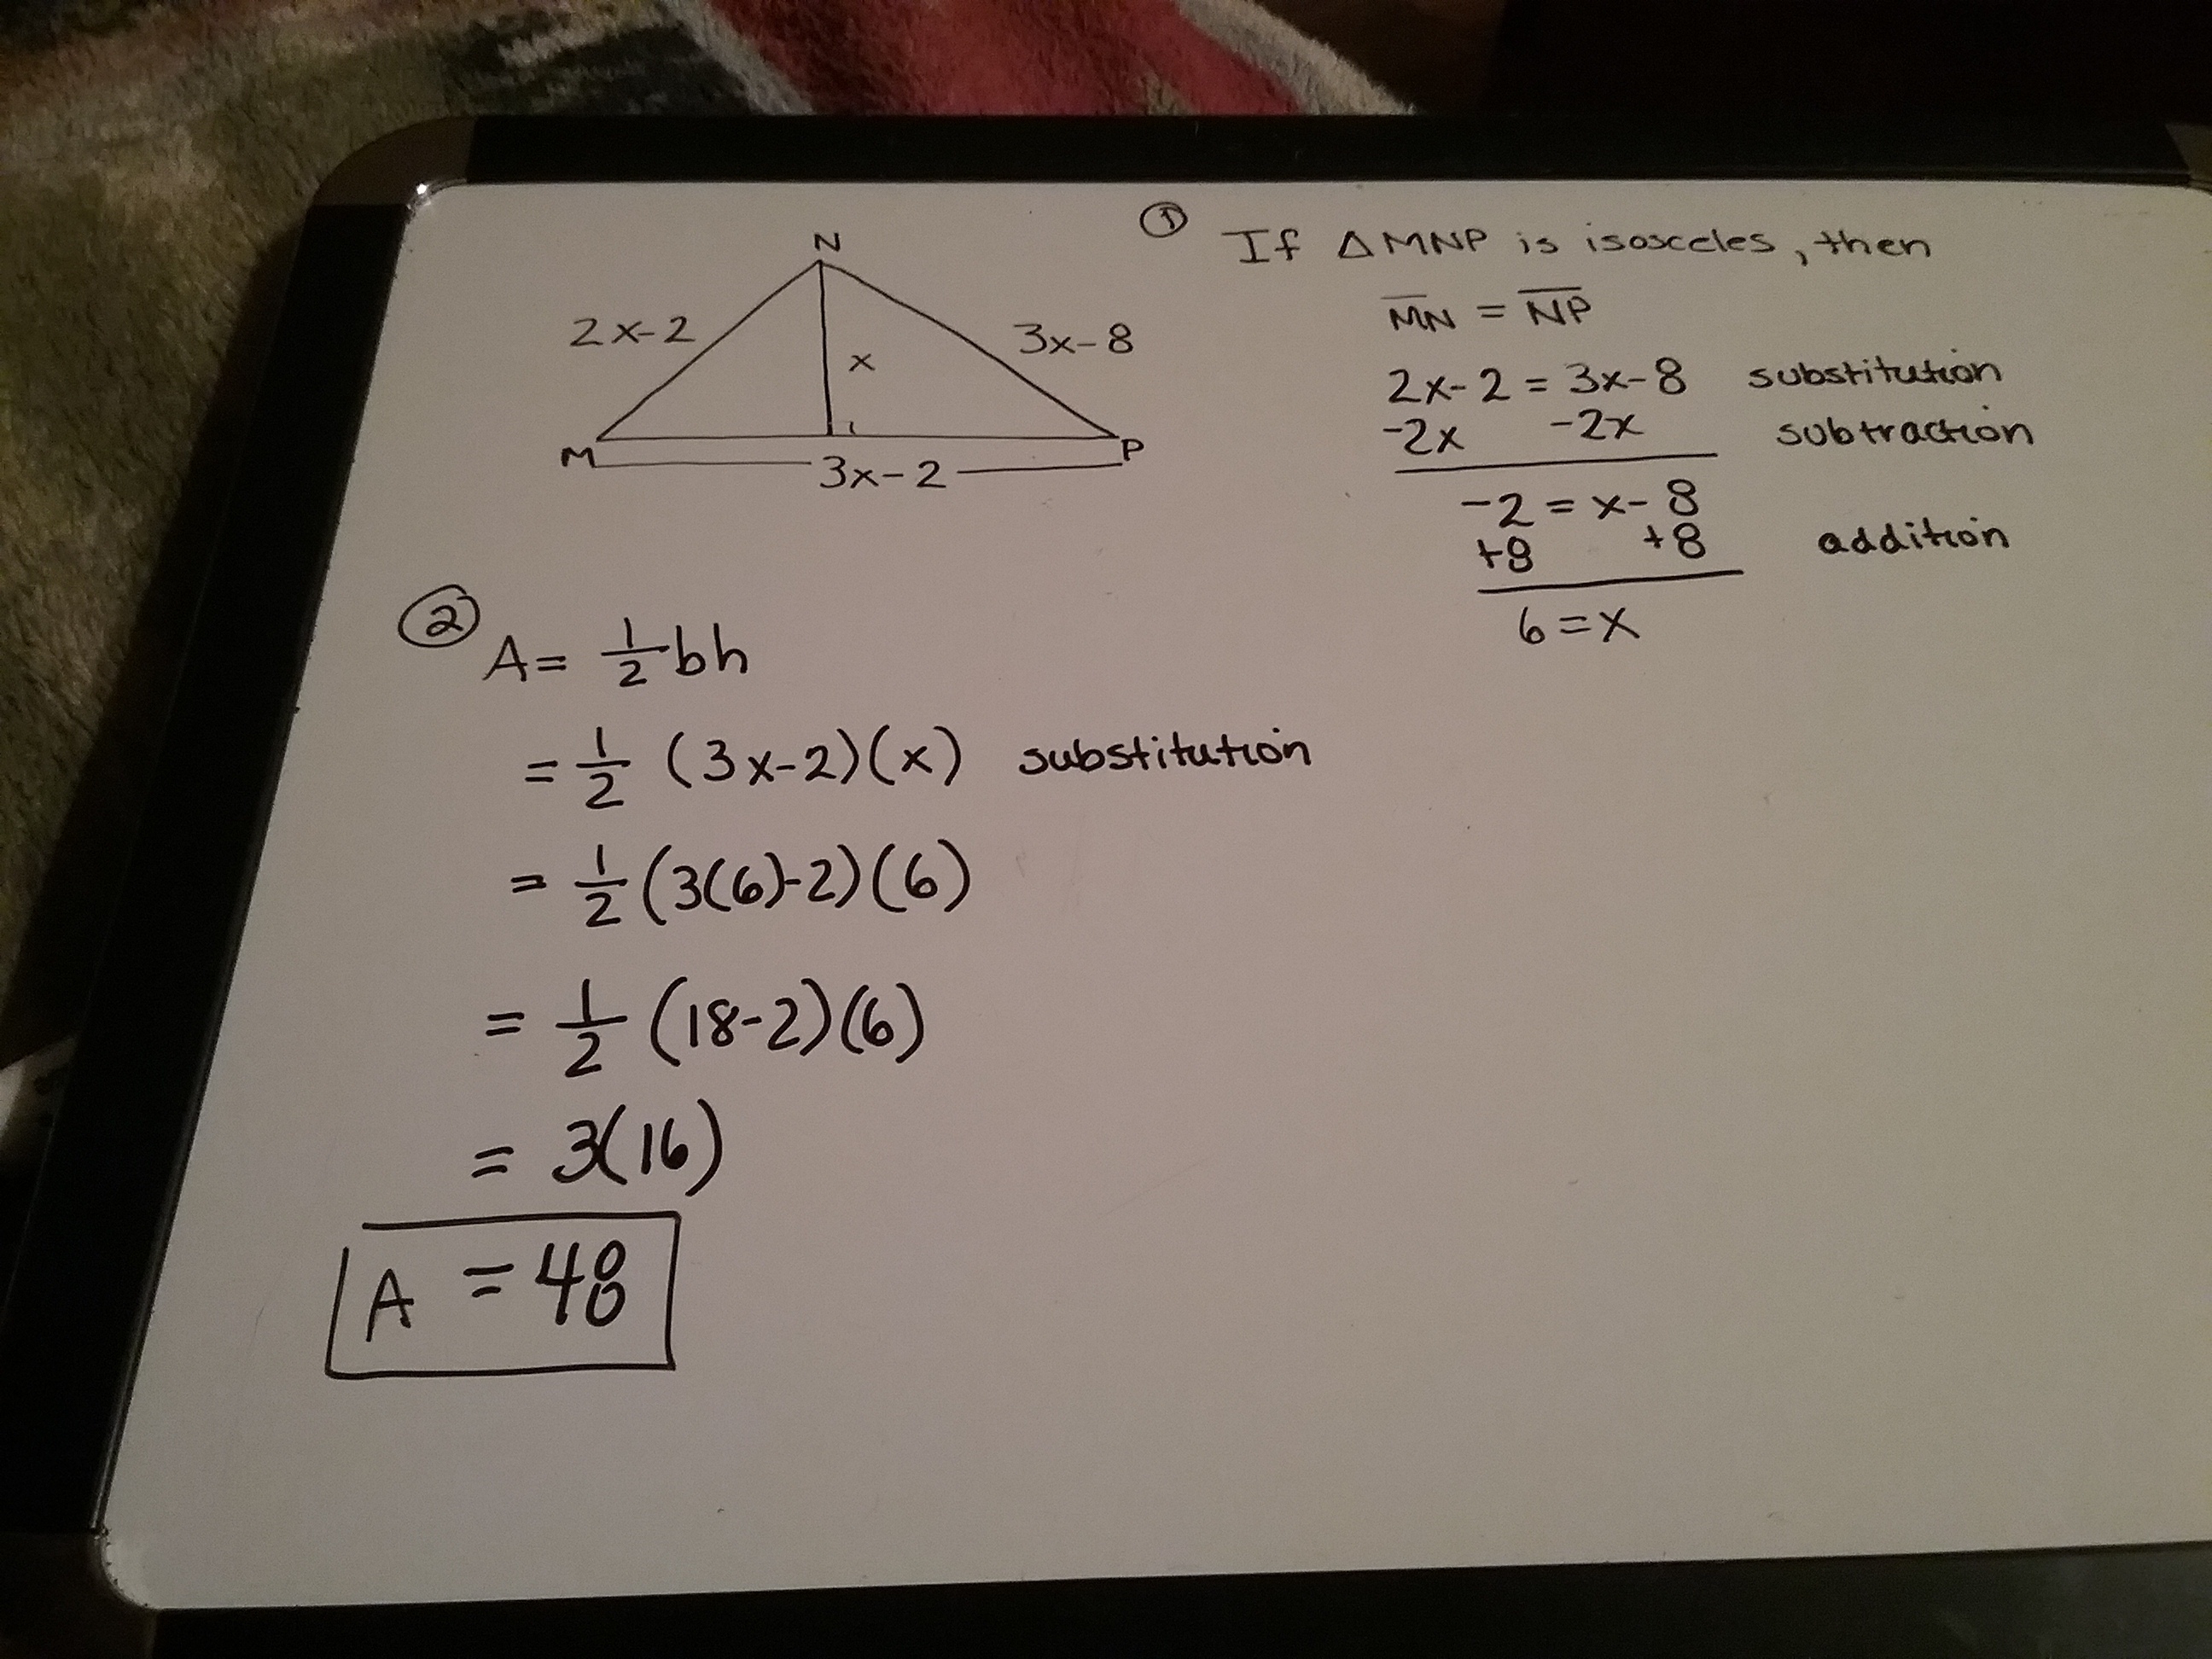 N
2x-2
x
3x-8
M
P
3x-2
① If △MNP is isosceles, then
M̅N̅ = N̅P̅
2x-2 = 3x-8 substitution
-2x -2x subtraction
-2 = x-8
+8 +8 addition
6 = x
② A = 1/2 bh
= 1/2 (3x-2)(x) substitution
= 1/2 (3(6)-2)(6)
= 1/2 (18-2)(6)
= 3(16)
A = 48